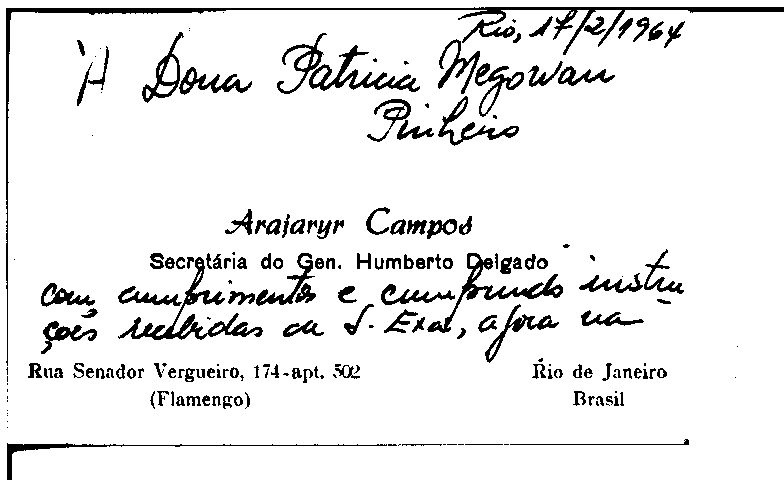 Rio, 17/2/1964
À Dona Patricia Mcgowan
Pinheiro
Arajaryr Campos
Secretária do Gen. Humberto Delgado
com cumprimentos e cumprindo instru
ções recebidas da S. Exa., agora na
Rua Senador Vergueiro, 174-apt. 502
Rio de Janeiro
(Flamengo)
Brasil